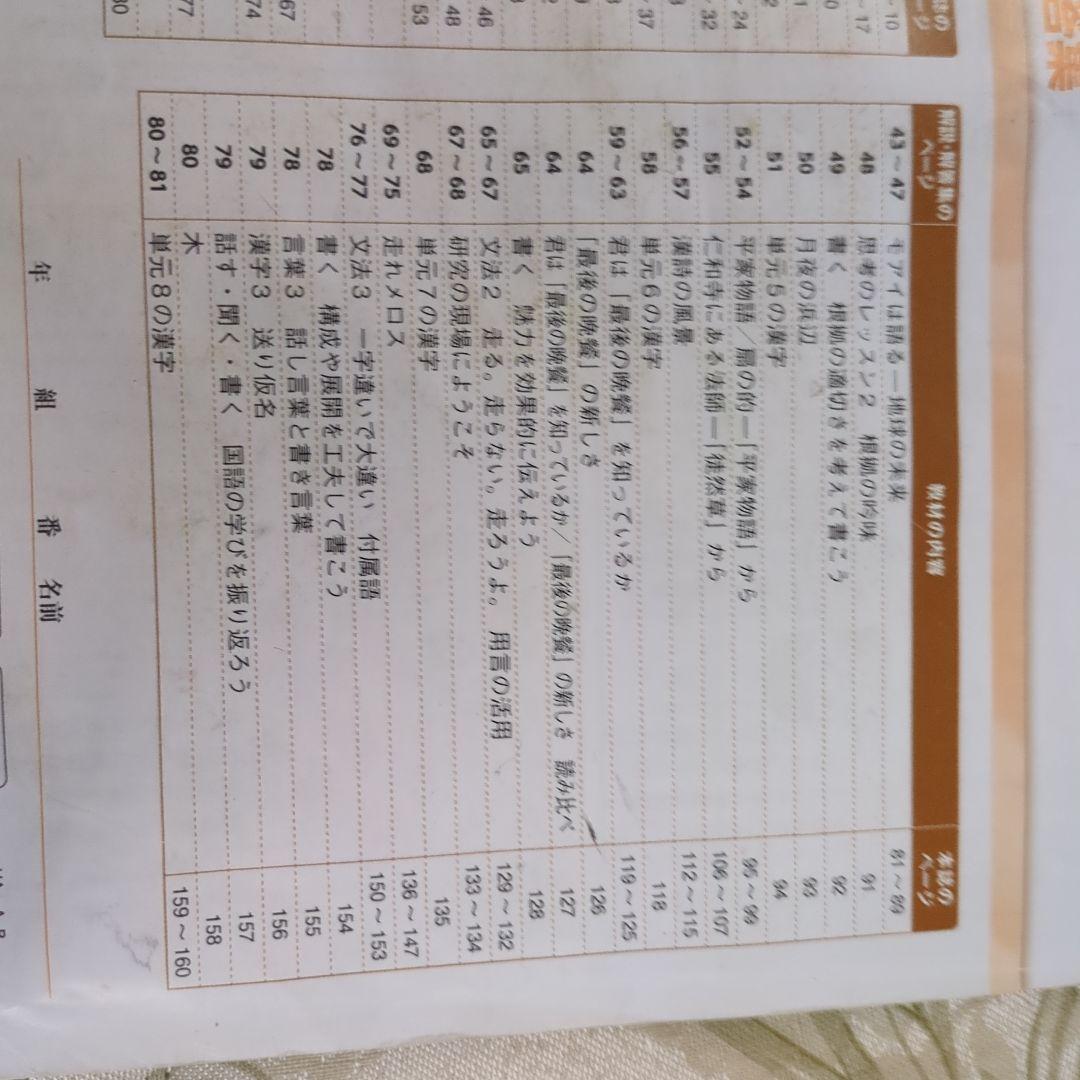 答集
解説・解答集のページ 教材の内容 本誌のページ
43～47 モアイは語る―地球の未来 81～89
48 思考のレッスン2 根拠の吟味 91
49 書く 根拠の適切さを考えて書こう 92
50 月夜の浜辺 93
51 単元5の漢字 94
52～54 平家物語／扇の的―「平家物語」から 95～99
55 仁和寺にある法師―「徒然草」から 106～107
56～57 漢詩の風景 112～115
58 単元6の漢字 118
59～63 君は「最後の晩餐」を知っているか 119～125
64 「最後の晩餐」の新しさ 126
64 君は「最後の晩餐」を知っているか／「最後の晩餐」の新しさ 読み比べ 127
65 書く 魅力を効果的に伝えよう 128
65～67 文法2 走る。走らない。走ろうよ。 用言の活用 129～132
67～68 研究の現場にようこそ 133～134
68 単元7の漢字 135
69～75 走れメロス 136～147
76～77 文法3 一字違いで大違い 付属語 150～153
78 書く 構成や展開を工夫して書こう 154
78 言葉3 話し言葉と書き言葉 155
79 漢字3 送り仮名 156
79 話す・聞く・書く 国語の学びを振り返ろう 157
80 木 158
80～81 単元8の漢字 159～160
年 組 番 名前